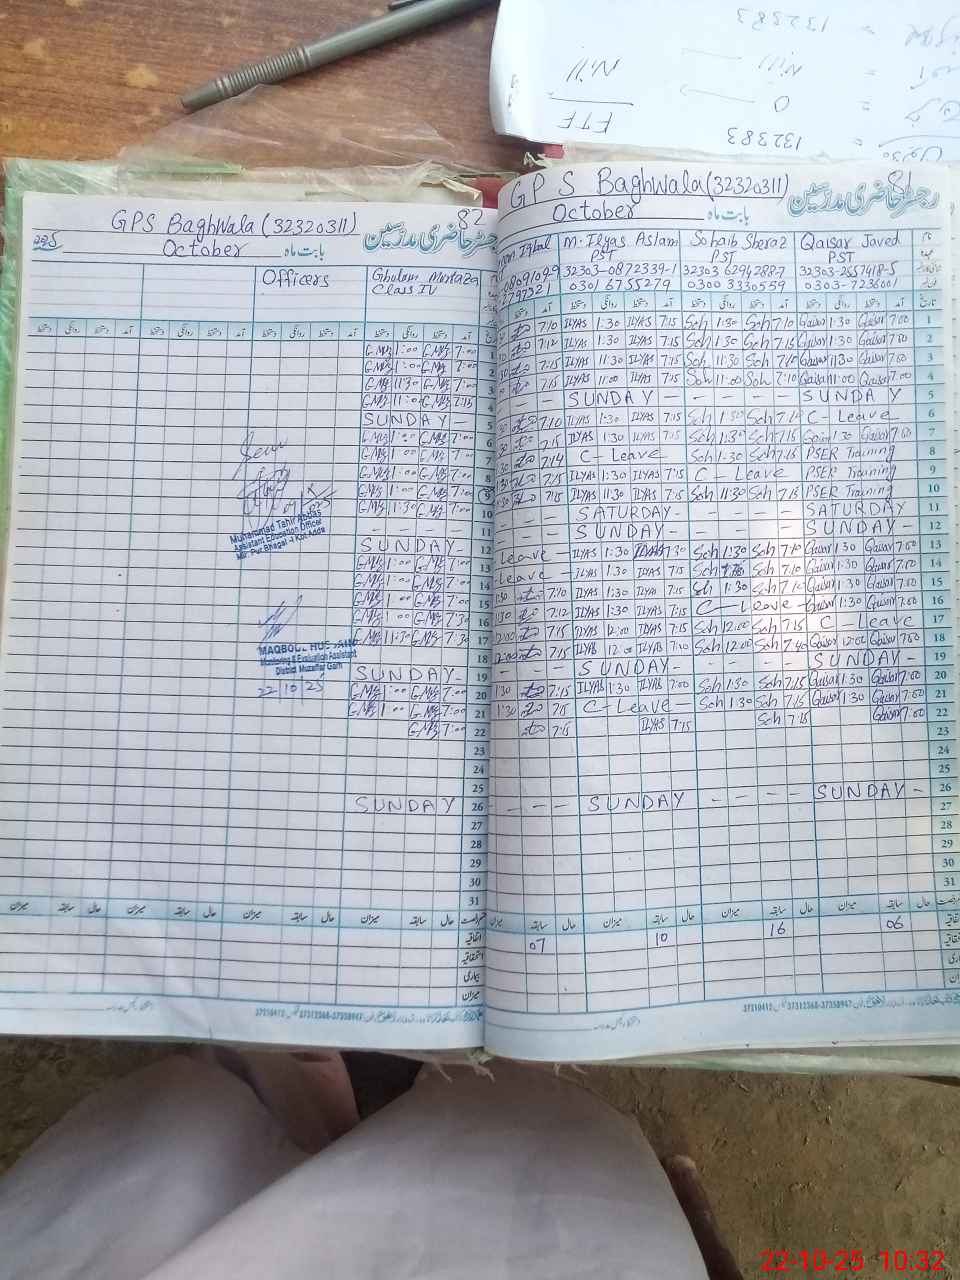 132383
Nill
Nill
0
FTF
132383
81
GPS Baghwala (32320311)
October بابت ماہ رجسٹر حاضری مدرسین
Iqbal M. Ilyas Aslam Sohaib Sheraz Qaisar Javed
PST PST PST
32303-0872339-1 32303 6294288-7 32303-2657418-5
0301 6755279 0300 3330559 0303-7236001
7:10 ILYAS 1:30 ILYAS 7:15 Soh 1:30 Soh 7:10 Qaisar 1:30 Qaisar 7:00 1
7:12 ILYAS 1:30 ILYAS 7:15 Soh 1:30 Soh 7:15 Qaisar 1:30 Qaisar 7:00 2
7:15 ILYAS 11:30 ILYAS 7:15 Soh 11:30 Soh 7:15 Qaisar 11:30 Qaisar 7:00 3
7:15 ILYAS 11:00 ILYAS 7:15 Soh 11:00 Soh 7:10 Qaisar 11:00 Qaisar 7:00 4
- - - SUNDAY - - - - - SUNDAY 5
7:10 ILYAS 1:30 ILYAS 7:15 Soh 1:30 Soh 7:10 C-Leave 6
7:15 ILYAS 1:30 ILYAS 7:15 Soh 1:30 Soh 7:15 Qaisar 1:30 Qaisar 7:00 7
7:14 C-Leave Soh 1:30 Soh 7:15 PSER Training 8
7:15 ILYAS 1:30 ILYAS 7:15 C-Leave PSER Training 9
7:15 ILYAS 11:30 ILYAS 7:15 Soh 11:30 Soh 7:15 PSER Training 10
- - - SATURDAY - - - - - SATURDAY 11
- - - SUNDAY - - - - - SUNDAY 12
Leave - ILYAS 1:30 ILYAS 7:30 Soh 1:30 Soh 7:10 Qaisar 1:30 Qaisar 7:00 13
-Leave- ILYAS 1:30 ILYAS 7:15 Soh Soh 7:10 Qaisar 1:30 Qaisar 7:00 14
1:30 7:10 ILYAS 1:30 ILYAS 7:15 Soh 1:30 Soh 7:10 Qaisar 1:30 Qaisar 7:00 15
1:30 7:12 ILYAS 1:30 ILYAS 7:15 C-Leave- Qaisar 1:30 Qaisar 7:00 16
12:00 7:15 ILYAS 12:00 ILYAS 7:15 Soh 12:00 Soh 7:15 C-Leave 17
12:00 7:15 ILYAS 12:00 ILYAS 7:20 Soh 12:00 Soh Qaisar 12:00 Qaisar 7:00 18
- - - SUNDAY - - - - - SUNDAY- 19
1:30 7:15 ILYAS 1:30 ILYAS 7:00 Soh 1:30 Soh 7:15 Qaisar 1:30 Qaisar 7:00 20
1:30 7:15 C-Leave- Soh 1:30 Soh 7:15 Qaisar 1:30 Qaisar 7:00 21
7:15 ILYAS 7:15 Soh 7:15 Qaisar 7:00 22
23
24
25
- - - - SUNDAY - - - - SUNDAY - 26
27
28
29
30
31
میزان سابقہ حال میزان سابقہ حال میزان سابقہ حال
07 10 16 06
37310412 37312368-37358947
82
GPS Baghwala (32320311)
October بابت ماہ رجسٹر حاضری مدرسین
Officers Ghulam Murtaza
Class IV
GMz 1:00 GMz 7:00 1
GMz 1:00 GMz 7:00 2
GMz 11:30 GMz 7:00 3
GMz 11:00 GMz 7:15 4
SUNDAY - 5
GMz 1:00 GMz 7:00 6
GMz 1:00 GMz 7:00 7
GMz 1:00 GMz 7:00 8
GMz 1:00 GMz 7:00 9
GMz 11:30 GMz 7:00 10
- - - - - 11
SUNDAY- 12
GMz 1:00 GMz 7:00 13
GMz 1:00 GMz 7:00 14
GMz 1:00 GMz 7:00 15
GMz 1:00 GMz 7:00 16
GMz 11:30 GMz 7:30 17
18
SUNDAY- 19
GMz 1:00 GMz 7:00 20
GMz 1:00 GMz 7:00 21
GMz 7:00 22
23
24
25
SUNDAY 26
27
28
29
30
31
Muhammad Tahir Abbas
Assistant Education Officer
Kot Addu
MAQBOOL HUSSAIN
Monitoring & Evaluation Assistant
District Muzaffar Garh
22/10/25
میزان سابقہ حال میزان سابقہ حال میزان سابقہ حال میزان سابقہ حال
اتفاقیہ
بیماری
میزان
37310412 37312368-37358947
22-10-25 10:32